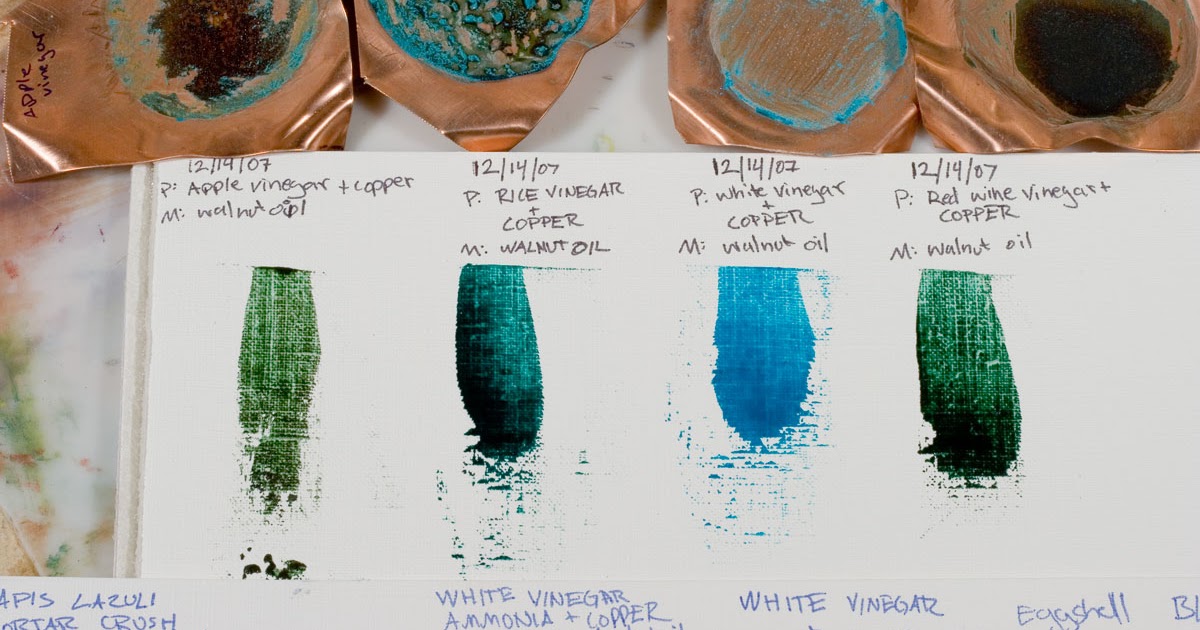 Apple
vinegar
12/14/07
P: Apple vinegar + copper
M: walnut oil
12/14/07
P: RICE VINEGAR
+
COPPER
M: WALNUT OIL
12/14/07
P: white vinegar
+
COPPER
M: walnut oil
12/14/07
P: Red wine vinegar +
COPPER
M: walnut oil
APIS LAZULI
ORTAR CRUSH
WHITE VINEGAR
AMMONIA + COPPER
WHITE VINEGAR
Eggshell
Bl